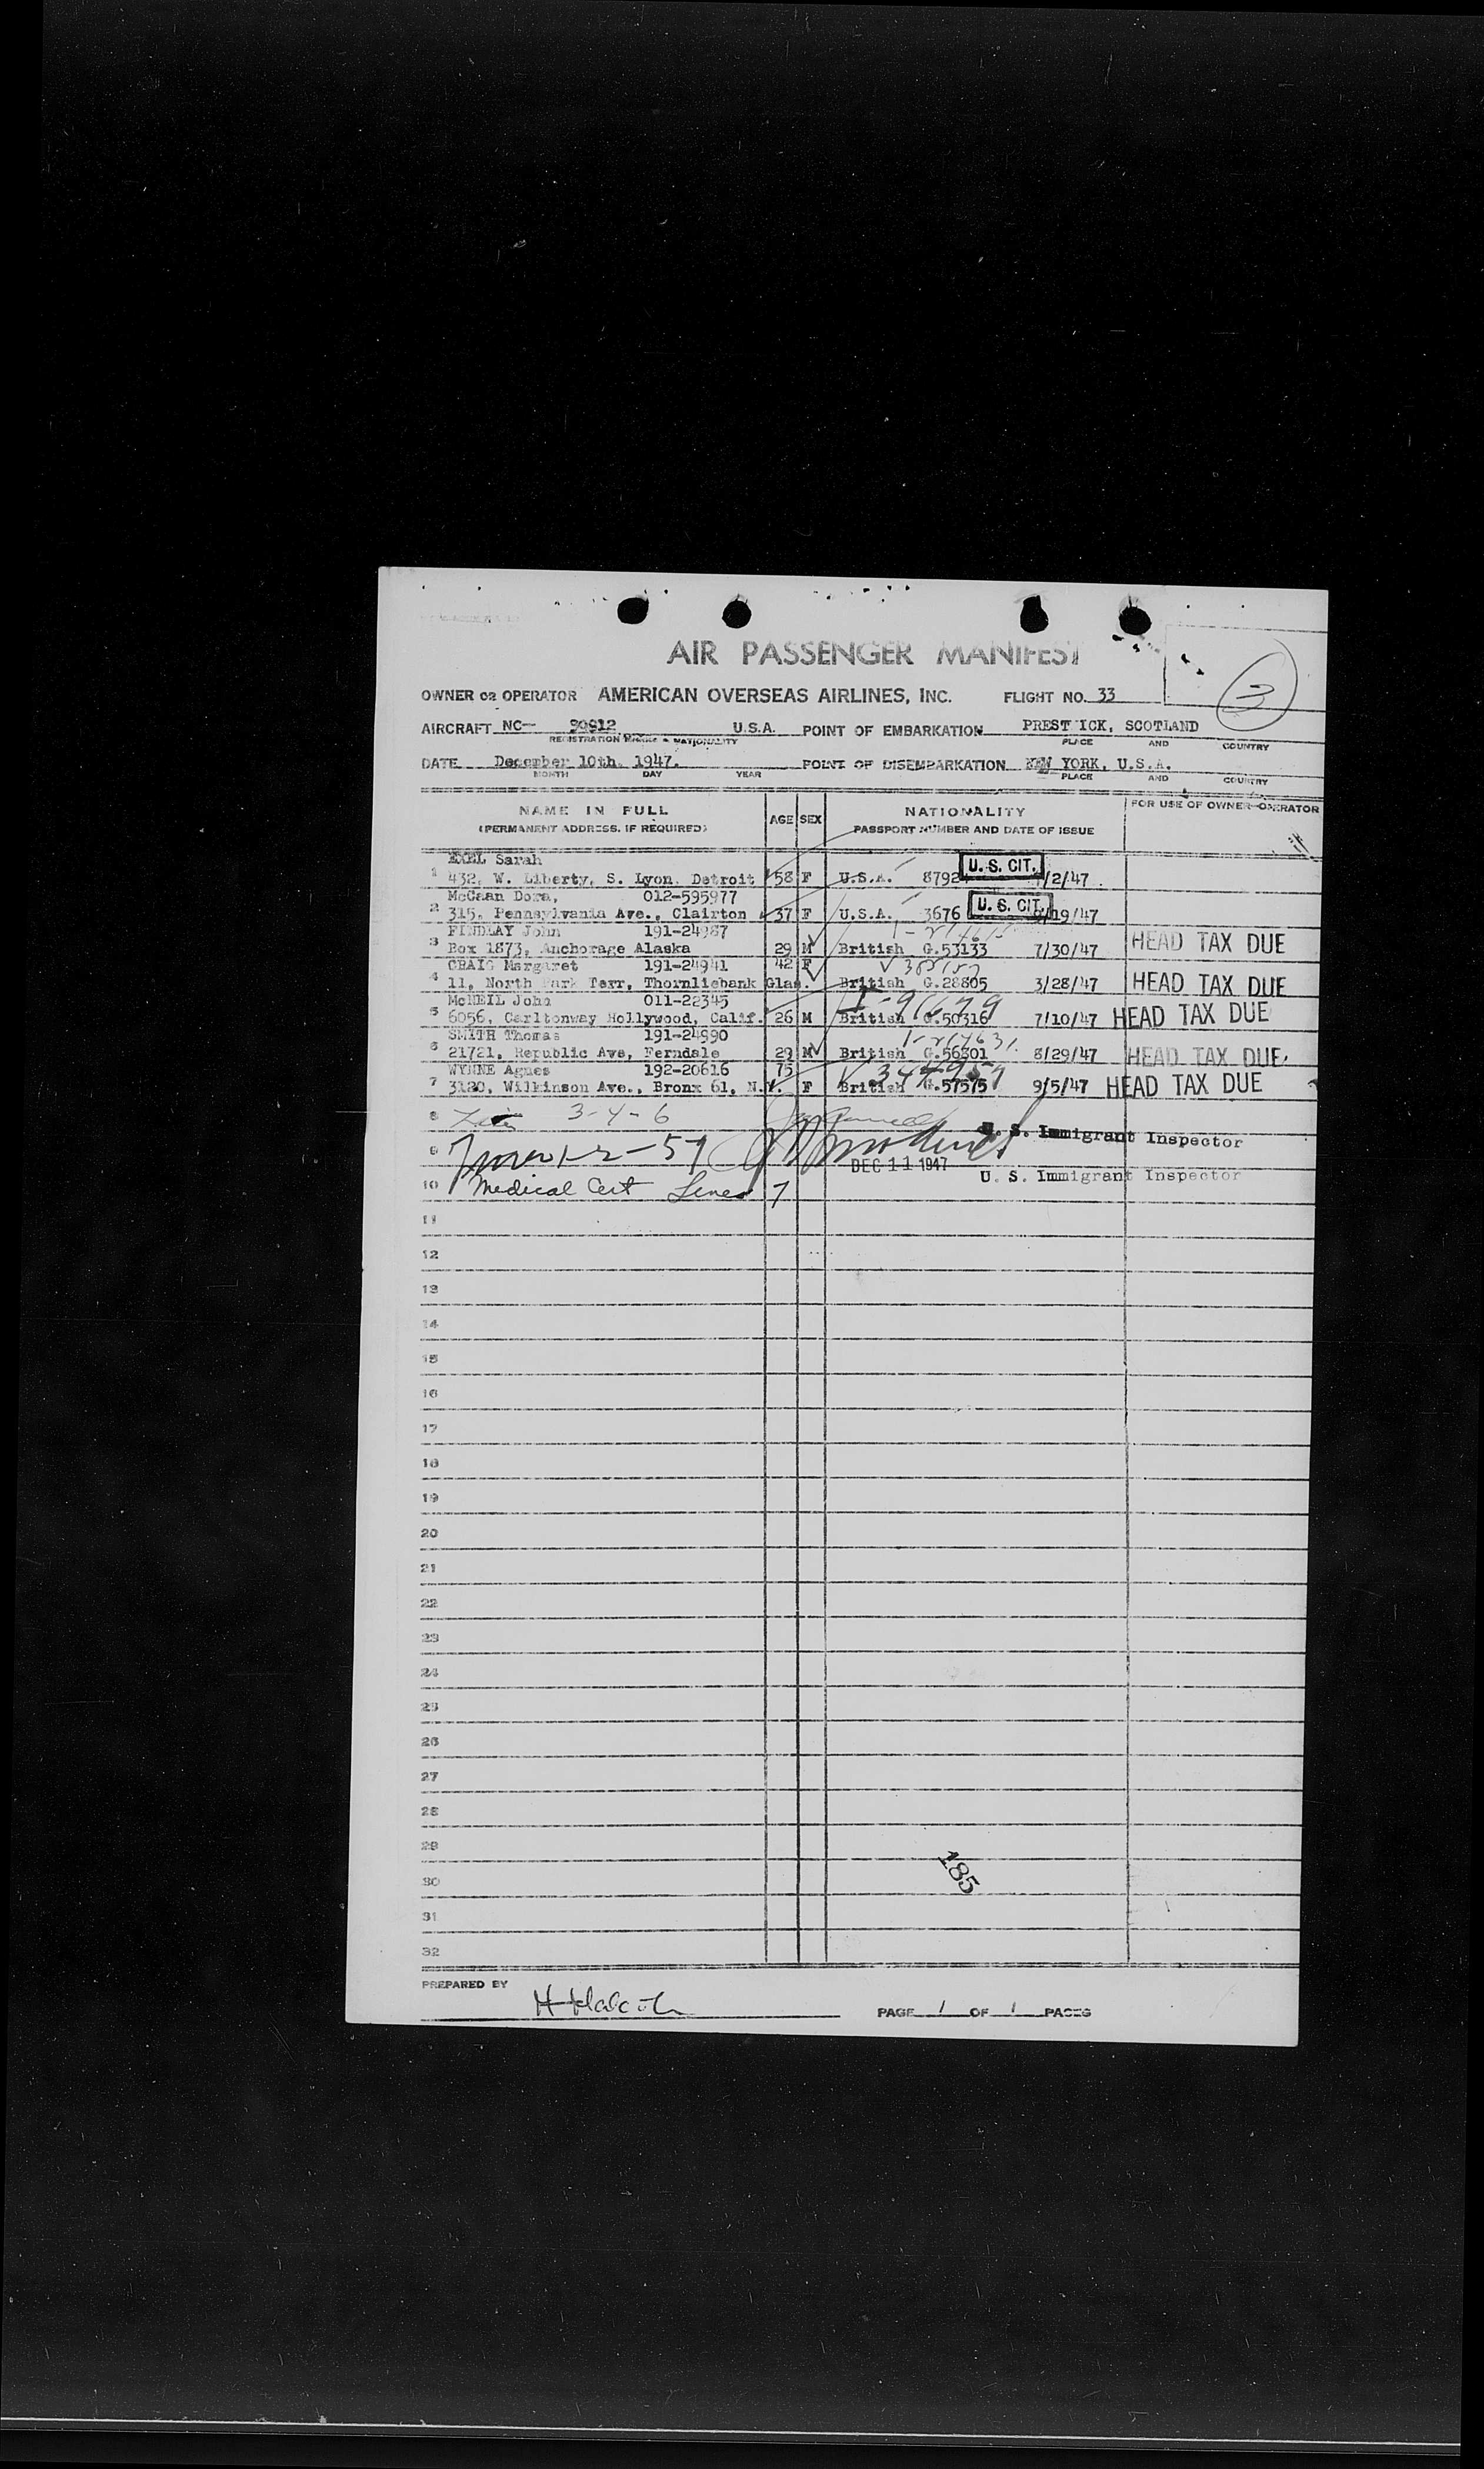 AIR PASSENGER MANIFEST
3
OWNER OR OPERATOR AMERICAN OVERSEAS AIRLINES, INC. FLIGHT NO. 33
AIRCRAFT NC- 90912 U.S.A. POINT OF EMBARKATION PRESTWICK, SCOTLAND
REGISTRATION MARKS & NATIONALITY PLACE AND COUNTRY
DATE December 10th. 1947. POINT OF DISEMBARKATION NEW YORK, U.S.A.
MONTH DAY YEAR PLACE AND COUNTRY
NAME IN FULL AGE SEX NATIONALITY FOR USE OF OWNER-OPERATOR
(PERMANENT ADDRESS, IF REQUIRED) PASSPORT NUMBER AND DATE OF ISSUE
EXEL Sarah U. S. CIT.
1 432, W. Liberty, S. Lyon, Detroit 58 F U.S.A. 8792 /2/47
McCaan Dora, 012-595977 U. S. CIT.
2 315, Pennsylvania Ave., Clairton 37 F U.S.A. 3676 /19/47
FINDLAY John 191-24987
3 Box 1873, Anchorage Alaska 29 M British G.53133 7/30/47 HEAD TAX DUE
CRAIG Margaret 191-24941 42 F
4 11, North Park Terr, Thornliebank Glas. British G.28805 3/28/47 HEAD TAX DUE
McNEIL John 011-22345
5 6056, Carltonway Hollywood, Calif. 26 M British G.50316 7/10/47 HEAD TAX DUE
SMITH Thomas 191-24990
6 21721, Republic Ave, Ferndale 29 M British G.56301 8/29/47 HEAD TAX DUE
WYNNE Agnes 192-20616 75
7 3120, Wilkinson Ave., Bronx 61, N.Y. F British G.57575 9/5/47 HEAD TAX DUE
8 3-4-6
U. S. Immigrant Inspector
9
DEC 11 1947
U. S. Immigrant Inspector
10 Medical Cert Lines 7
11
12
13
14
15
16
17
18
19
20
21
22
23
24
25
26
27
28
29
185
30
31
32
PREPARED BY
PAGE 1 OF 1 PAGES